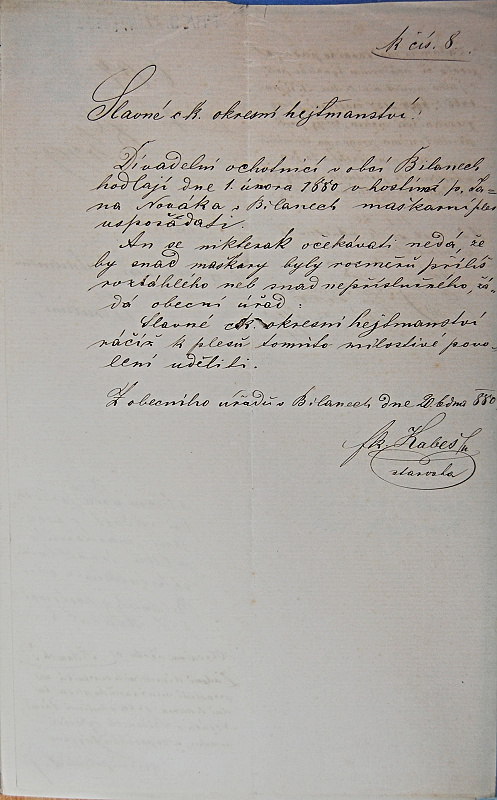 k čís. 8.
Slavné c.k. okresní hejtmanství!
Divadelní ochotníci v obci Bilanech
hodlají dne 1. února 1880 v hostinci p. Ja-
na Nováka v Bilanech maškarní ples
uspořádati.
An se nikterak očekávati nedá, že
by snad maškary byly rozměrů příliš
roztáhlého neb snad nepříslušného, žá-
dá obecní úřad:
Slavné c.k. okresní hejtmanství
račiž k plesu tomuto milostivé povo-
lení uděliti.
Z obecního úřadu v Bilanech dne 20. ledna 880
Fr. Kabeš
starosta